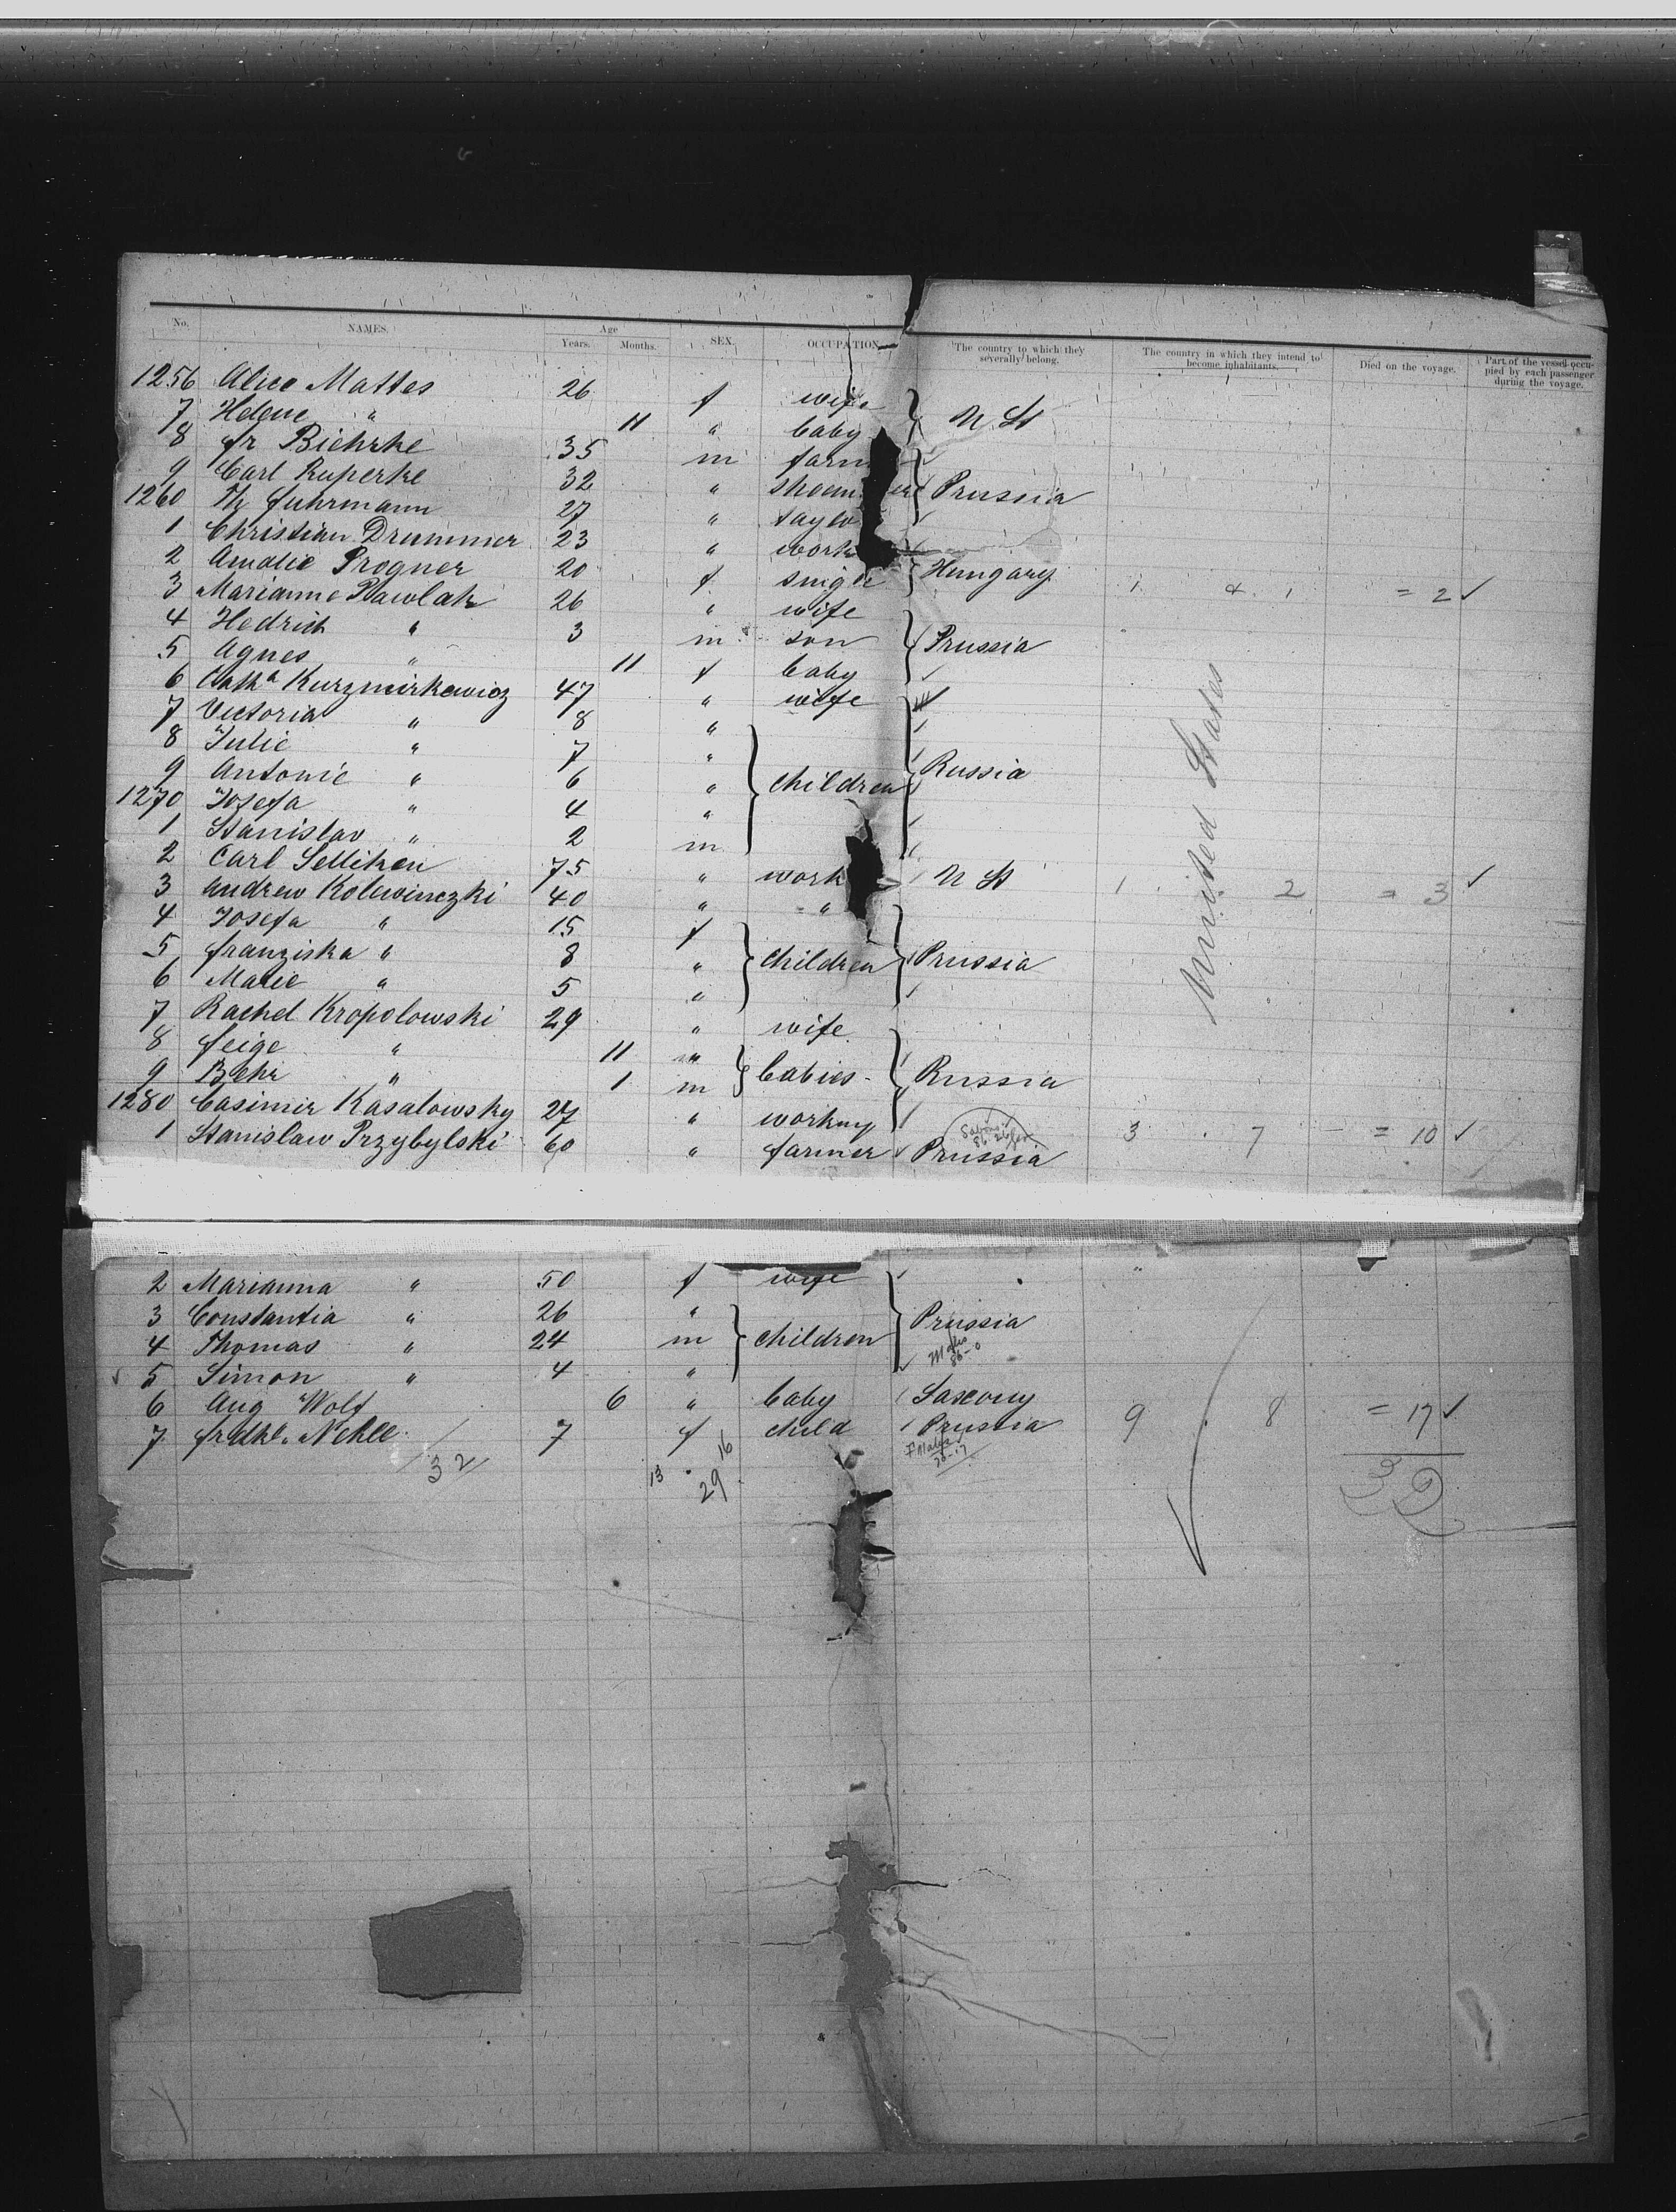 No. NAMES. Age Years. Months. SEX. OCCUPATION The country to which they severally belong. The country in which they intend to become inhabitants. Died on the voyage. Part of the vessel occupied by each passenger during the voyage.
1256 Alice Mattes 26 f wife
7 Helene " 11 " baby U St
8 fr Biehrke 35 m farm
9 Carl Ruperke 32 " Shoem Prussia
1260 Th fuhrmann 27 " taylo
1 Christian Drummer 23 " work
2 Amalie Progner 20 f single Hungary 1 4 1 = 2
3 Marianne Pawlak 26 " wife
4 Hedrich " 3 m son Prussia
5 Agnes " 11 f baby
6 Catha Kurzmirkewicz 47 " wife
7 Victoria " 8 "
8 Julie " 7 "
9 Antonie " 6 " children Russia
1270 Josefa " 4 "
1 Stanislav " 2 m
2 Carl Selliken 75 " work U St 1 2 = 3
3 Andrew Kolewinczki 40 " "
4 Josefa " 15 f
5 franziska " 8 " children Prussia
6 Marie " 5 "
7 Rachel Kropolowski 29 " wife
8 feige " 11 "
9 Behr " 1 m babies Russia
1280 Casimir Kasalowsky 27 " workmg
1 Stanislaw Przybylski 60 " farmer Prussia 3 7 = 10
United States
2 Marianna " 50 f wife
3 Constantia " 26 "
4 Thomas " 24 m children Prussia
5 Simon " 4 "
Males 86-0
6 Aug Wolf 6 " baby Saxony
7 fredke Nehls 7 f child Prussia 9 8 = 17
32 13 16 29 32